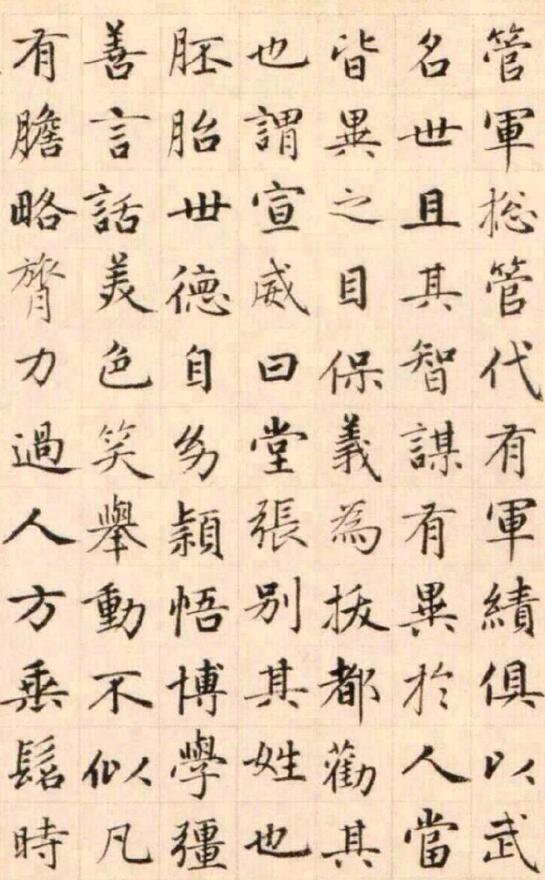 管軍捴管代有軍績俱以武
名世且其智謀有異於人當
皆異之目保義為拔都勸其
也謂宣威曰堂張別其姓也
胚胎世德自幼穎悟博學彊
善言話美色笑舉動不似凡
有膽略膂力過人方垂髫時